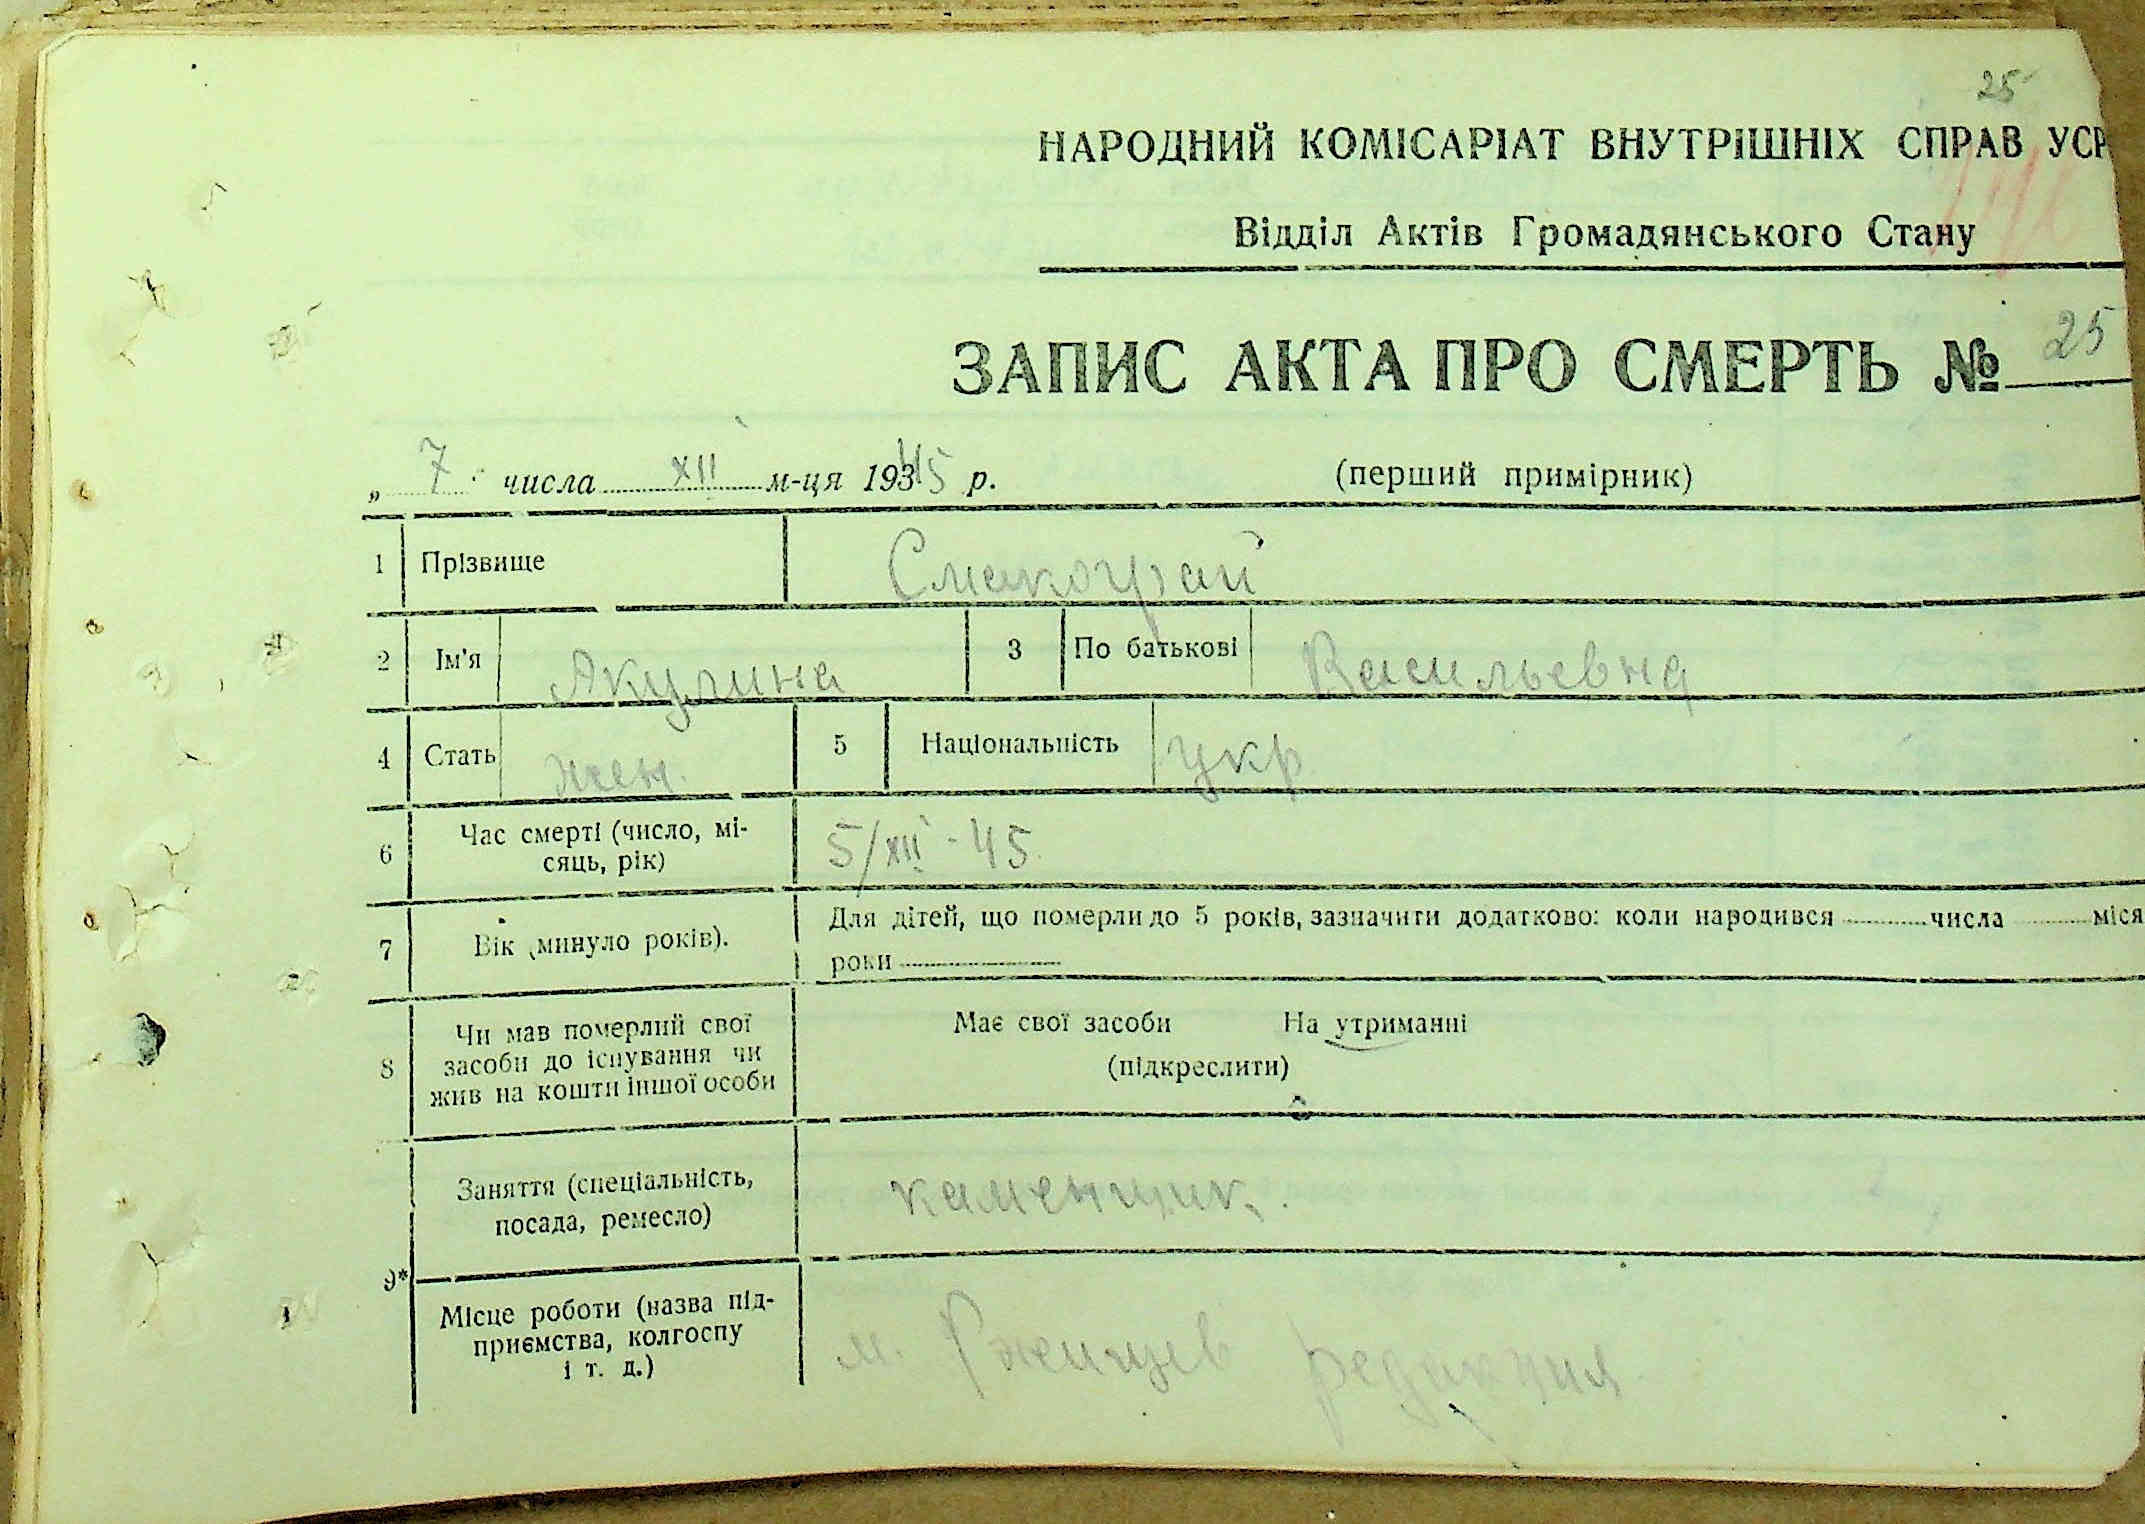 25
НАРОДНИЙ КОМІСАРІАТ ВНУТРІШНІХ СПРАВ УСР
Відділ Актів Громадянського Стану
ЗАПИС АКТА ПРО СМЕРТЬ № 25
„ 7 числа XII м-ця 19345 р. (перший примірник)
1 Прізвище Смакограй
2 Ім'я Якулина 3 По батькові Васильевна
4 Стать жен. 5 Національність укр
6 Час смерті (число, мі-
сяць, рік) 5/XII - 45
7 Вік (минуло років). Для дітей, що померли до 5 років, зазначити додатково: коли народився числа міся
роки
8 Чи мав померлий свої
засоби до існування чи
жив на кошти іншої особи
Має свої засоби На утриманні
(підкреслити)
9*
Заняття (спеціальність,
посада, ремесло) каменщик.
Місце роботи (назва під-
приємства, колгоспу
і т. д.) м. Ржищев редакция